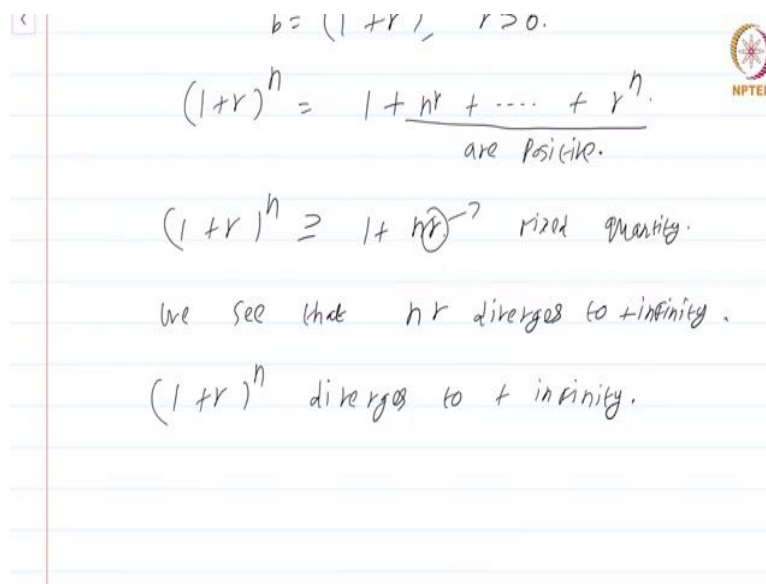 b = (1 + r), r > 0.
NPTEL
(1+r)^n = 1 + nr + .... + r^n.
are positive.
(1 + r)^n ≥ 1 + nr → fixed quantity.
we see that nr diverges to +infinity.
(1 + r)^n diverges to + infinity.